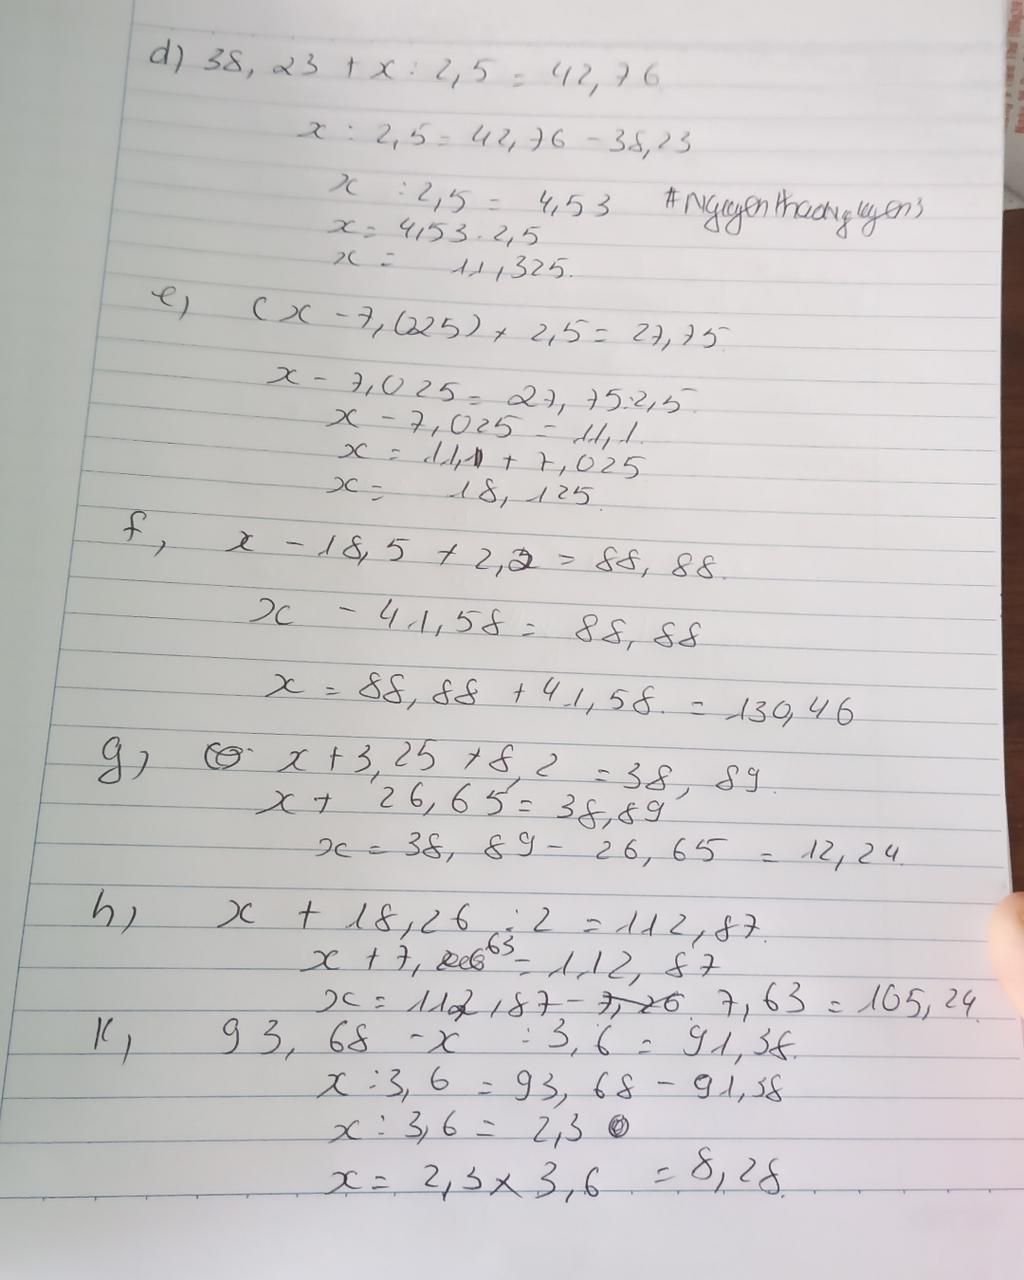 d) 38,23 + x : 2,5 = 42,76
x : 2,5 = 42,76 - 38,23
x : 2,5 = 4,53
x = 4,53 . 2,5
x = 11,325.
e, (x - 7,025) x 2,5 = 27,75
x - 7,025 = 27,75:2,5.
x - 7,025 = 11,1.
x = 11,1 + 7,025
x = 18,125.
f, x - 18,5 + 2,2 = 88,88.
x - 41,58 = 88,88
x = 88,88 + 41,58. = 130,46
g, x + 3,25 x 8,2 = 38,89.
x + 26,65 = 38,89
x = 38,89 - 26,65 = 12,24.
h, x + 18,26 : 2 = 112,87.
x + 7,63 = 112,87
x = 112,87 - 7,26 7,63 = 105,24.
k, 93,68 - x : 3,6 = 91,38.
x : 3,6 = 93,68 - 91,38
x : 3,6 = 2,3
x = 2,3 x 3,6 = 8,28.